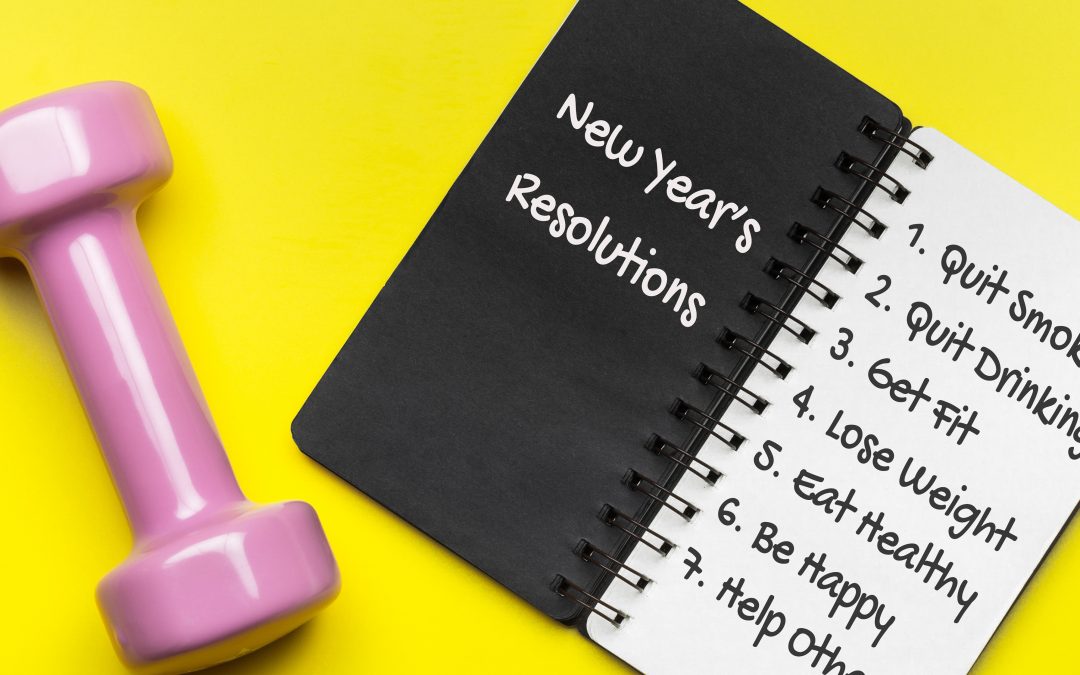 New Year's
Resolutions
1. Quit Smok
2. Quit Drinking
3. Get Fit
4. Lose Weight
5. Eat Healthy
6. Be Happy
7. Help Othe